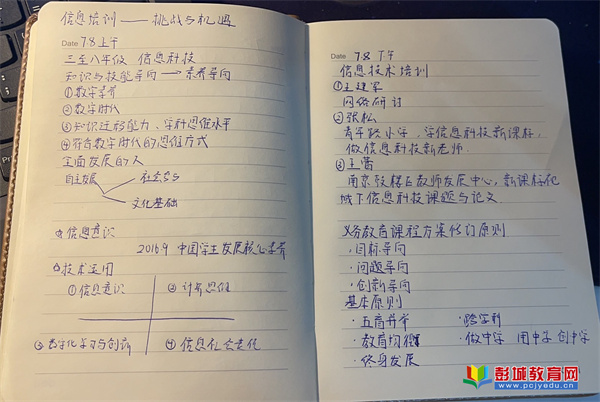 信息培训——挑战与机遇
Date 7.8 上午
三至八年级 信息科技
知识与技能导向→素养导向
①数字素养
②数字时代
③知识迁移能力、学科思维水平
④符合数字时代的思维方式
全面发展的人
自主发展
社会参与
文化基础
信息意识
2016.9 中国学生发展核心素养
技术应用
①信息意识
②计算思维
③数字化学习与创新
④信息社会责任
Date 7.8 下午
信息技术培训
①王建军
网络研讨
②张松
青年路小学,学信息科技新课标,
做信息科技新老师.
③王蕾
南京鼓楼区教师发展中心,新课标视
域下信息科技课题与论文.
义务教育课程方案修订原则
·目标导向
·问题导向
·创新导向
基本原则
·五育并举 ·跨学科
·教育均衡 ·做中学 用中学 创中学
·终身发展
彭城教育网
www.pcjyedu.cn